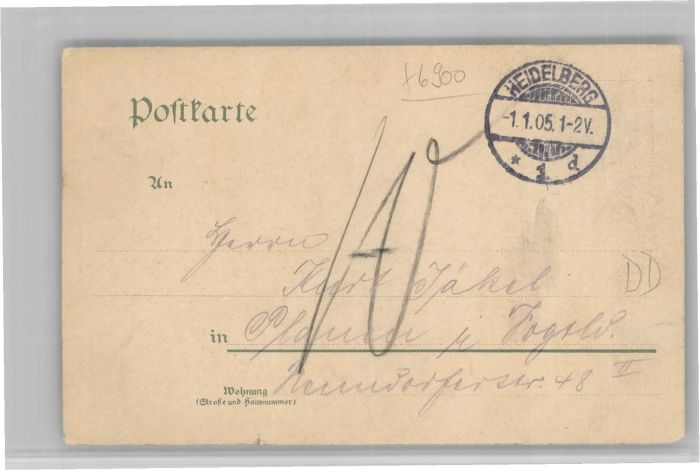 x6900
HEIDELBERG
-1.1.05.1-2V.
* 1 d
Postkarte
An
10
Herrn
Karl Jäkel
DD
in Plauen i/ Vogtld.
Wohnung
(Straße und Hausnummer)
Neundorferstr. 48 II